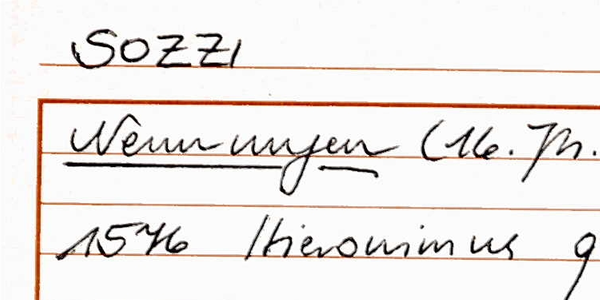 SOZZI
Nennungen (16. Jh.
1576 Hieronimus g